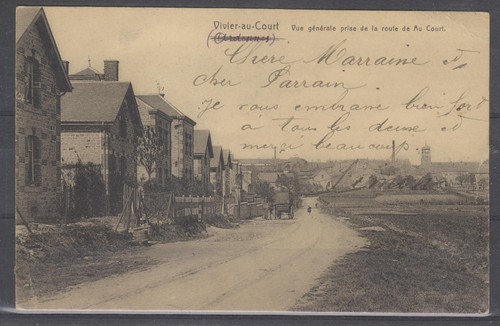 Vivier-au-Court Vue générale prise de la route de Au Court.
(Ardennes)
Chère Marraine et
cher Parrain
je vous embrasse bien fort
à tous les deux et
merci beaucoup